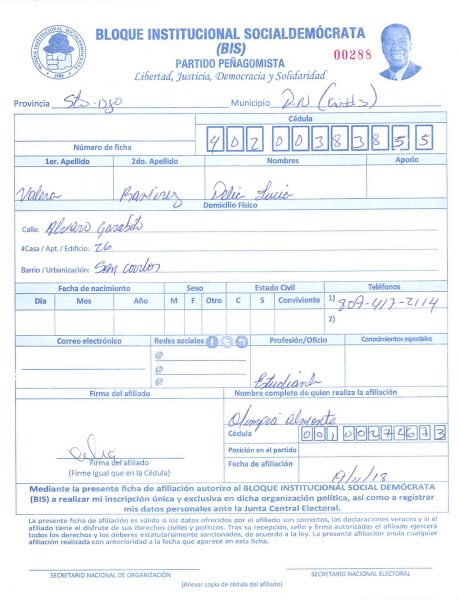 BLOQUE INSTITUCIONAL SOCIALDEMÓCRATA
(BIS)
PARTIDO PEÑAGOMISTA
Libertad, Justicia, Democracia y Solidaridad
00288
BLOQUE INSTITUCIONAL SOCIALDEMÓCRATA
Provincia Sto-Dgo Municipio D.N
Cédula
Número de ficha 402 0038385 5
1er. Apellido 2do. Apellido Nombres Apodo
Valera Ramirez Delia Lucia
Domicilio Físico
Calle: Alvaro Garabito
#Casa / Apt. / Edificio: 26
Barrio / Urbanización: San Carlos
Fecha de nacimiento Sexo Estado Civil Teléfonos
Día Mes Año M F Otro C S Conviviente 1) 809-417-2114
2)
Correo electrónico Redes sociales Profesión/Oficio Conodmientos especiales
@
@
@ Estudiante
Firma del afiliado Nombre completo de quien realiza la afiliación
Olimpia Almonte
Cédula 001 0027467 3
Posición en el partido
Firma del afiliado Fecha de afiliación
(Firme igual que en la Cédula) 19/4/18
Mediante la presente ficha de afiliación autorizo al BLOQUE INSTITUCIONAL SOCIAL DEMÓCRATA
(BIS) a realizar mi inscripción única y exclusiva en dicha organización política, así como a registrar
mis datos personales ante la Junta Central Electoral.
La presente ficha de afiliación es válida si los datos ofrecidos por el afiliado son correctos, las declaraciones veraces y si el
afiliado tiene el disfrute de sus derechos civiles y políticos. Tras su recepción, sello y firma autorizados el afiliado ejercerá
todos los derechos y los deberes estatutariamente sancionados, de acuerdo a la ley. La presente afiliación anula cualquier
afiliación realizada con anterioridad a la fecha que aparece en esta ficha.
SECRETARIO NACIONAL DE ORGANIZACIÓN SECRETARIO NACIONAL ELECTORAL
(Anexar copia de cédula del afiliado)